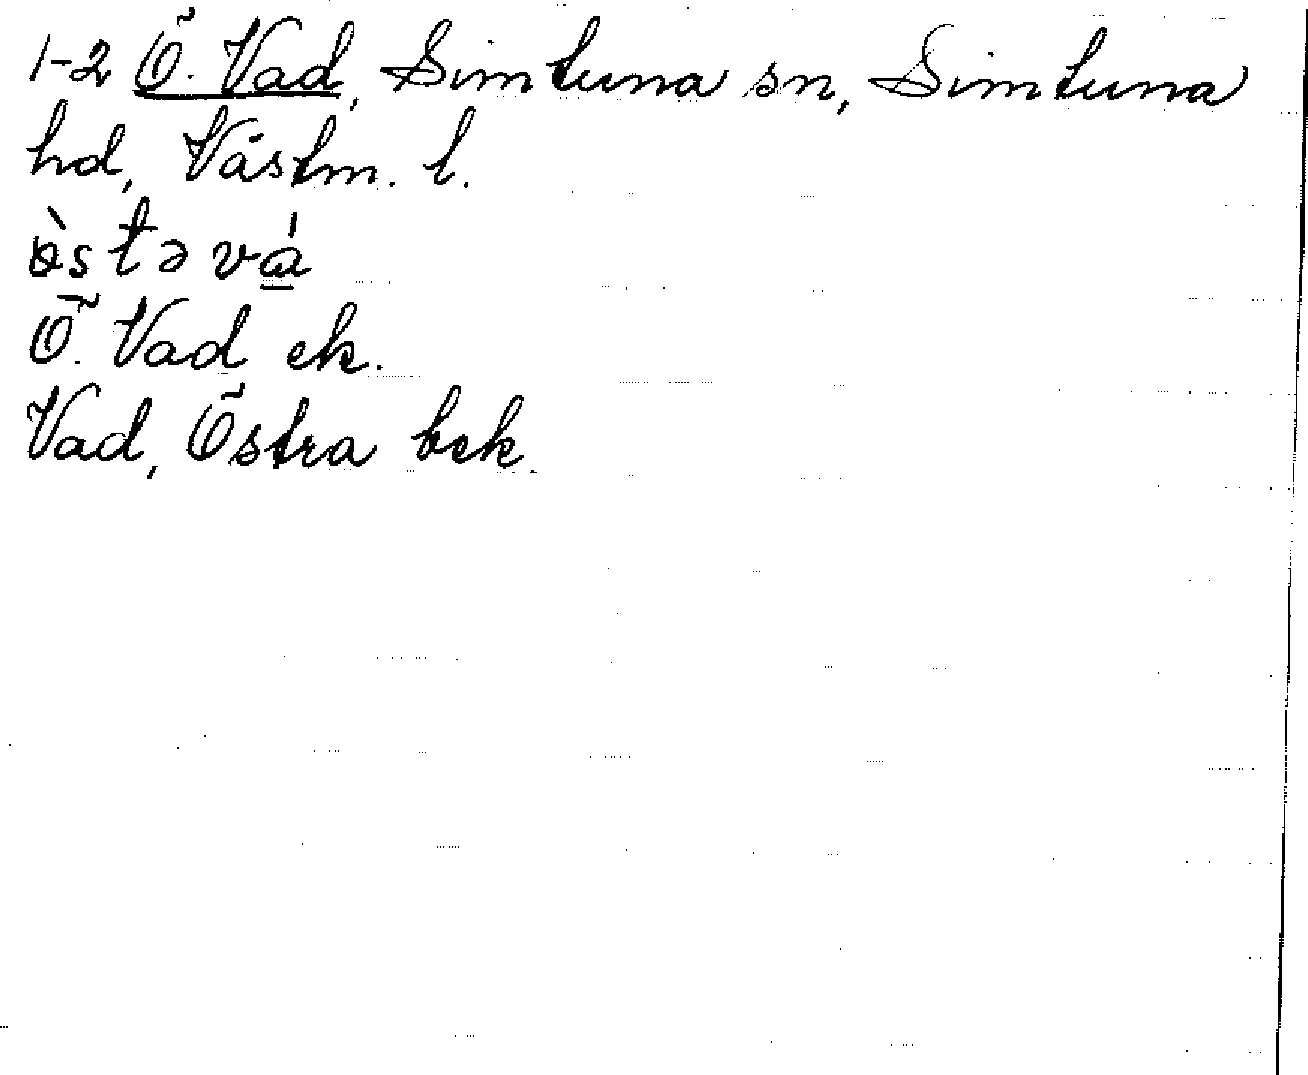 1-2 Ö. Vad, Simtuna sn, Simtuna
hd, Västm. l.
ö̀stəvá̱
Ö. Vad ek.
Vad, Östra bek.